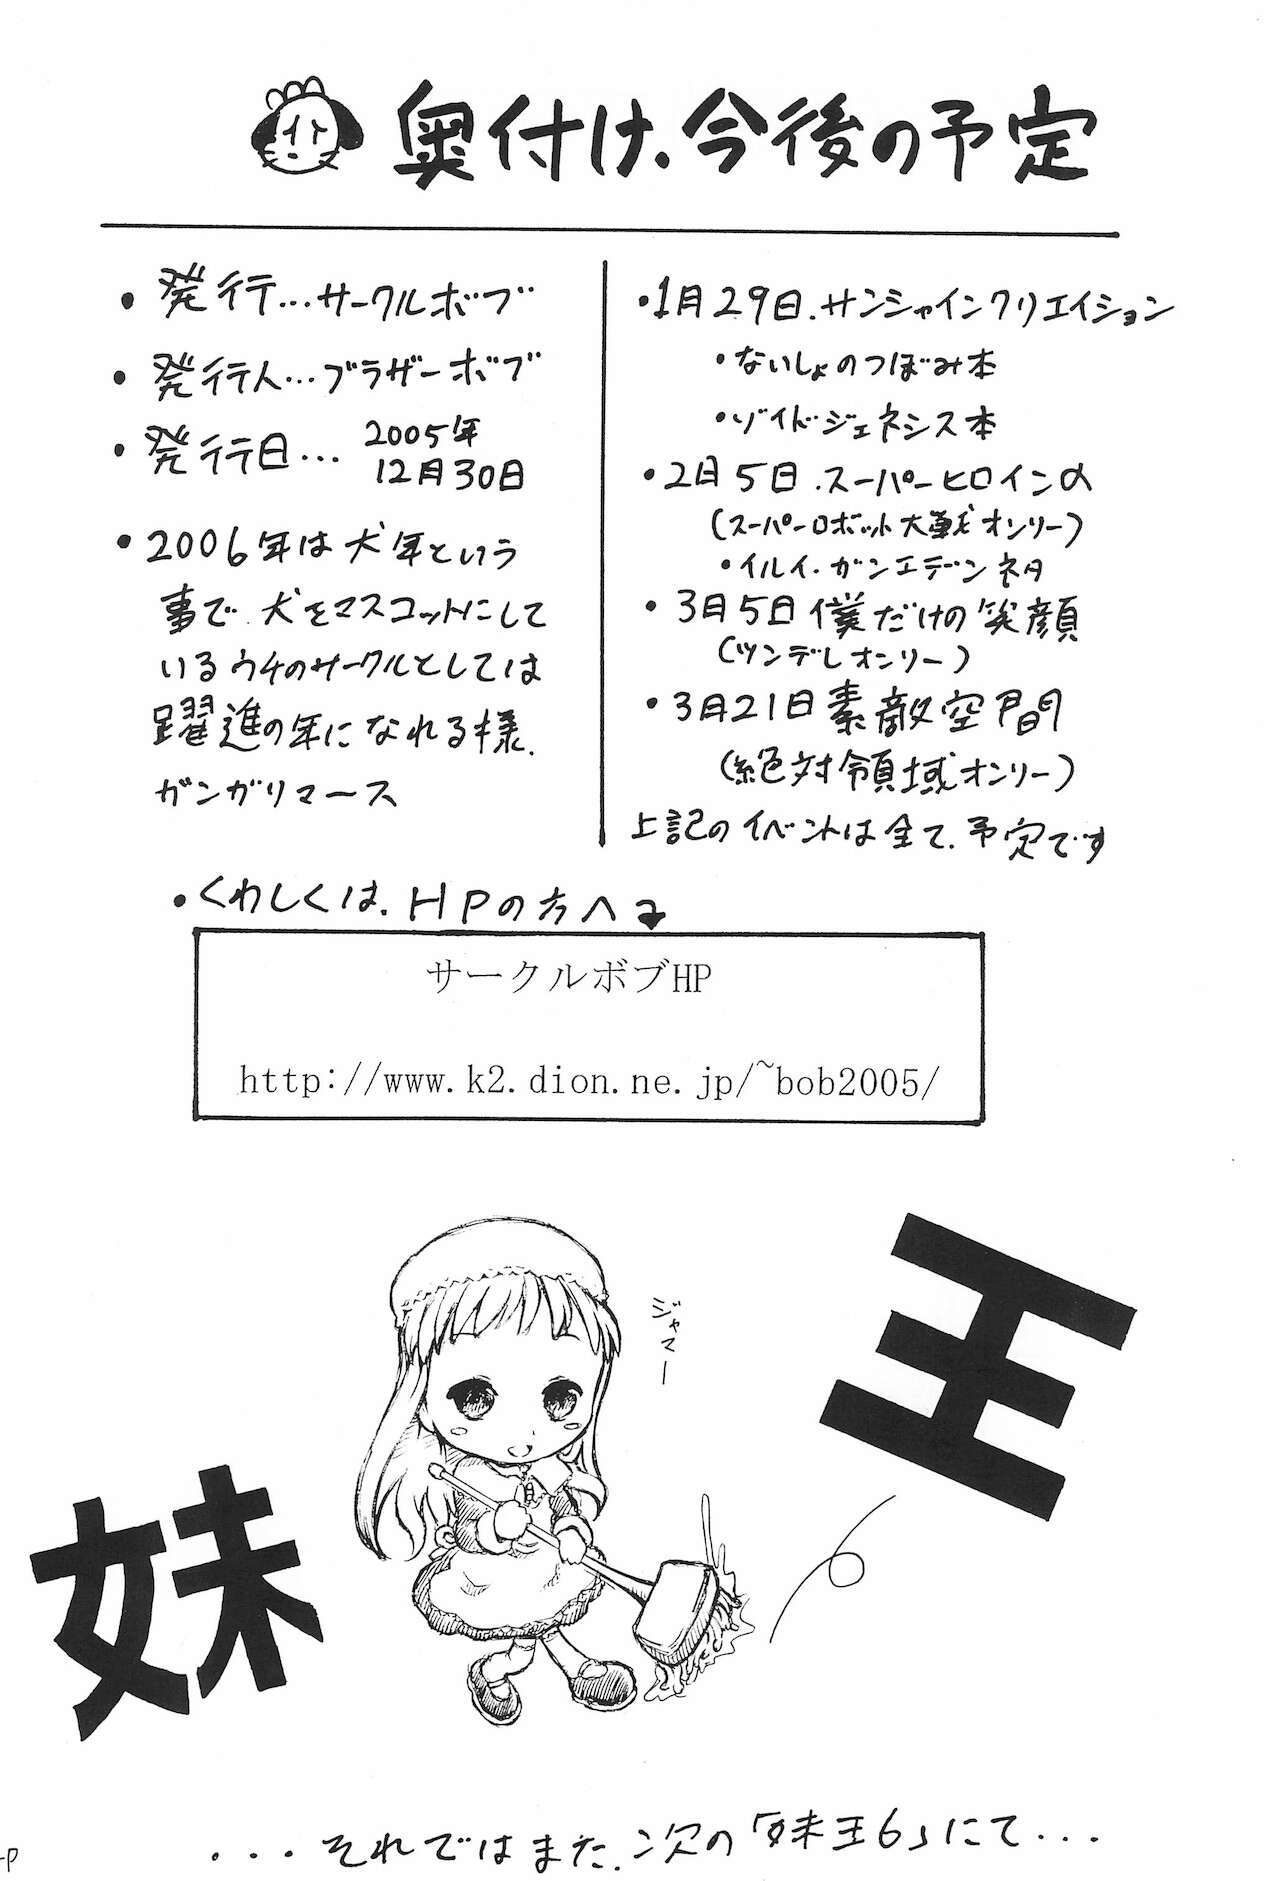 奥付け、今後の予定
・発行…サークルボブ
・発行人…ブラザーボブ
・発行日… 2005年
12月30日
・2006年は犬年という
事で、犬をマスコットにして
いるウチのサークルとしては
躍進の年になれる様、
ガンガリマース
・1月29日、サンシャインクリエイション
・ないしょのつぼみ本
・ゾイドジェネシス本
・2月5日、スーパーヒロインα
(スーパーロボット大戦オンリー)
・イルイ・ガンエデンネタ
・3月5日僕だけの笑顔
(ツンデレオンリー)
・3月21日素敵空間
(絶対領域オンリー)
上記のイベントは全て、予定です
・くわしくは、HPの方へ
サークルボブHP
http://www.k2.dion.ne.jp/~bob2005/
ジャマー
王
妹
・・・それではまた、次の「妹王6」にて・・・